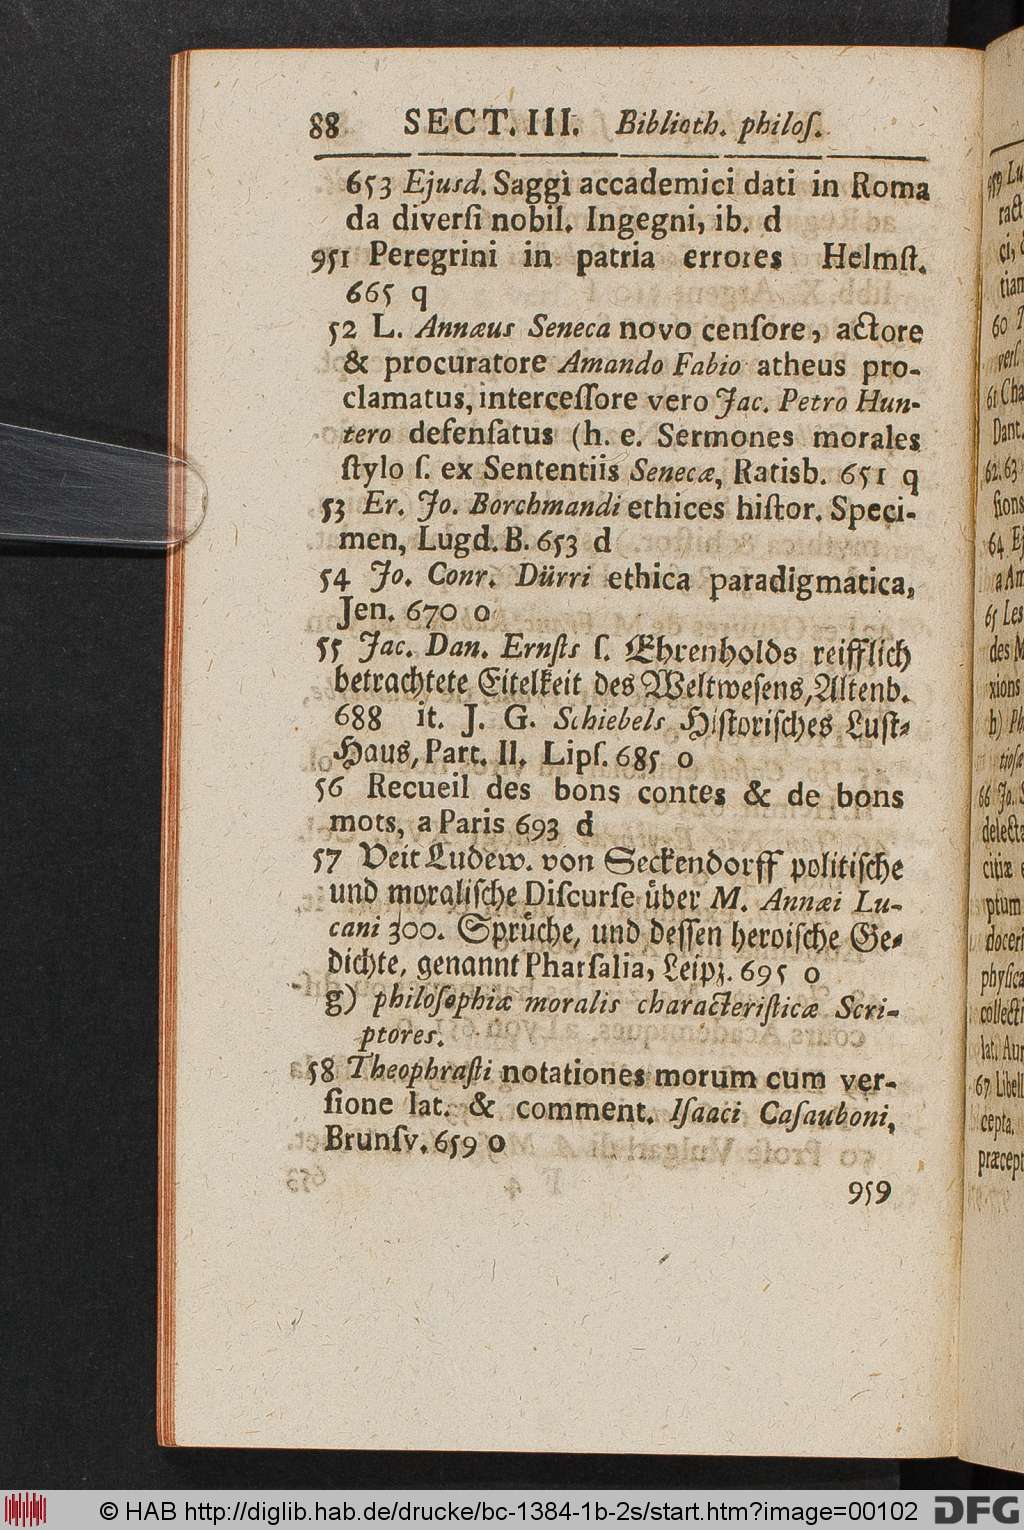 88 SECT. III. Biblioth. philoſ.
653 Ejusd. Saggi accademici dati in Roma
da diverſi nobil. Ingegni, ib. d
951 Peregrini in patria errores Helmſt.
665 q
52 L. Annæus Seneca novo cenſore, actore
& procuratore Amando Fabio atheus pro-
clamatus, interceſſore vero Jac. Petro Hun-
tero defenſatus (h. e. Sermones morales
ſtylo ſ. ex Sententiis Senecæ, Ratisb. 651 q
53 Er. Jo. Borchmandi ethices hiſtor. Speci-
men, Lugd. B. 653 d
54 Jo. Conr. Dürri ethica paradigmatica,
Jen. 670 o
55 Jac. Dan. Ernſts ſ. Ehrenholds reifflich
betrachtete Eitelkeit des Weltweſens, Altenb.
688 it. J. G. Schiebels Hiſtoriſches Luſt-
Haus, Part. II. Lipſ. 685 o
56 Recueil des bons contes & de bons
mots, a Paris 693 d
57 Veit Ludew. von Seckendorff politiſche
und moraliſche Diſcurſe über M. Annæi Lu-
cani 300. Sprüche, und deſſen heroiſche Ge-
dichte, genannt Pharſalia, Leipz. 695 o
g) philoſophiæ moralis characteriſticæ Scri-
ptores.
58 Theophraſti notationes morum cum ver-
ſione lat. & comment. Iſaaci Caſauboni,
Brunſv. 659 o
959
959 Lu
ract
ci,
tian
60
verſ
61 Cha
Dant.
62. 63
ſions
64 Ej
a Am
65 Les
des M
xions
h) Ph
tioſæ
66 Jo. S
delecta
citiæ e
ptum
doceri
phyſica
collecti
lat. Aur
67 Libell
cepta,
præcept
© HAB http://diglib.hab.de/drucke/bc-1384-1b-2s/start.htm?image=00102 DFG